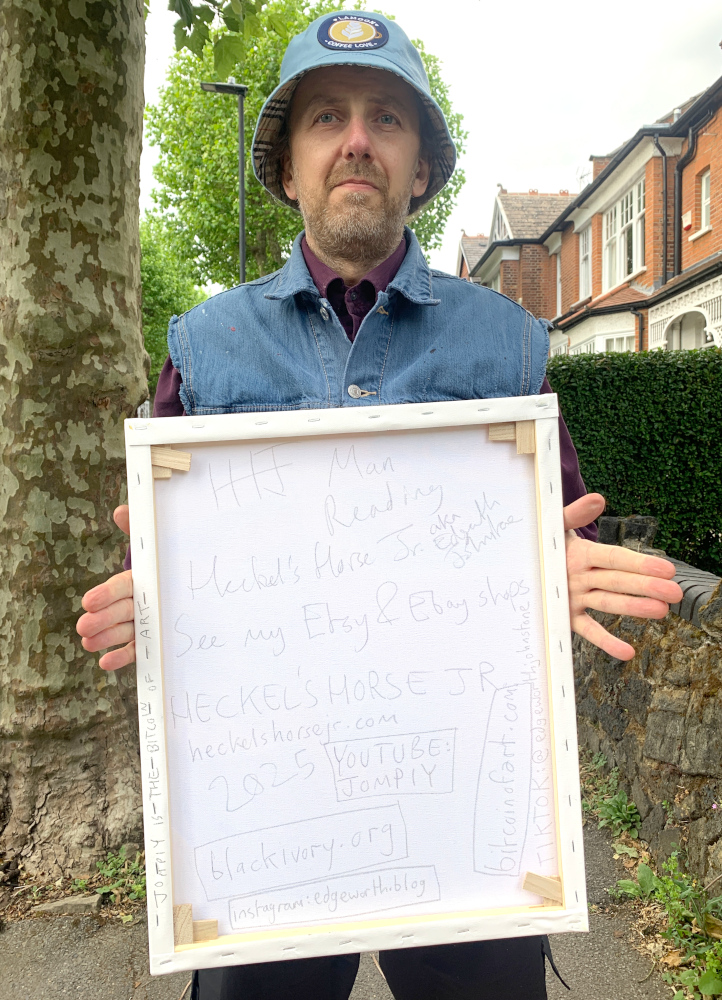 LAMOON
COFFEE LOVE
HHJ Man
Reading
Heckel's Horse Jr.
aka
Edgeworth
Johnstone
See my Etsy & Ebay shops
HECKEL'S HORSE JR
heckelshorsejr.com
2025
YOUTUBE:
JOMPIY
blackivory.org
instagram:edgeworth.blog
bitcoinofart.com
TIKTOK:@edgeworthjohnstone
-JOMPIY IS-THE-BITCOIN OF -ART-